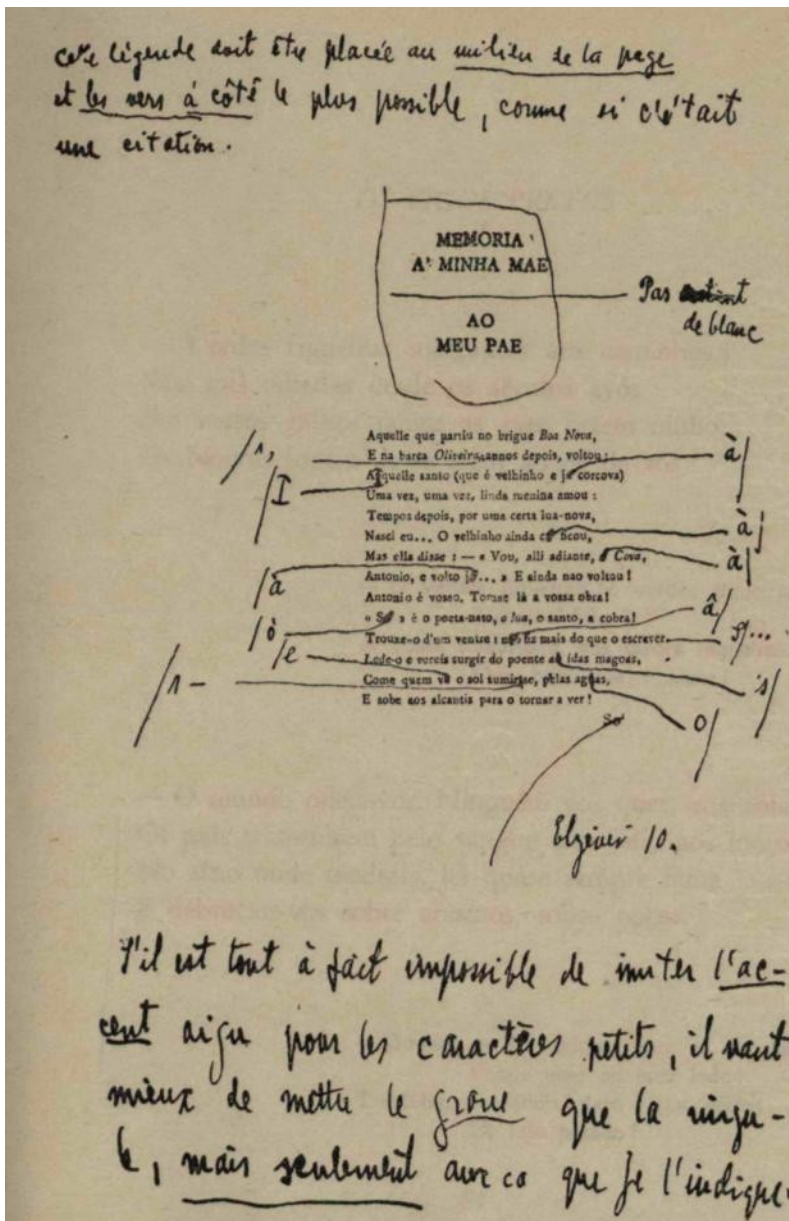 cette légende doit être placée au milieu de la page
et les vers à côté le plus possible, comme si c'était
une citation.
MEMORIA
A' MINHA MAE
Pas
de blanc
AO
MEU PAE
Aquelle que partiu no brigue Boa Nova,
/1, E na barca Oliveira, annos depois, voltou; à/
/I Aquelle santo (que é velhinho e já corcova)
Uma vez, uma vez, linda menina amou :
Tempos depois, por uma certa lua-nova,
Nasci eu... O velhinho ainda cá ficou, à/
Mas ella disse : — « Vou, alli adiante, á Cova, à/
/à Antonio, e volto já... » E ainda nao voltou !
Antonio é vosso. Tomae lá a vossa obra!
/ò « Só » é o poeta-nato, o lua, o santo, a cobra! â/
Trouxe-o d'um ventre : não fiz mais do que o escrever. /...
/e Lede-o e vereis surgir do poente as idas magoas, s/
/1 - Como quem vê o sol sumir-se, pelas agoas, o/
E sobe aos alcantis para o tornar a ver !
So'
Elzévir 10.
S'il est tout à fait impossible de imiter l'ac-
cent aigu pour les caractères petits, il vaut
mieux de mettre le grave que la virgu-
le, mais seulement que je l'indique.